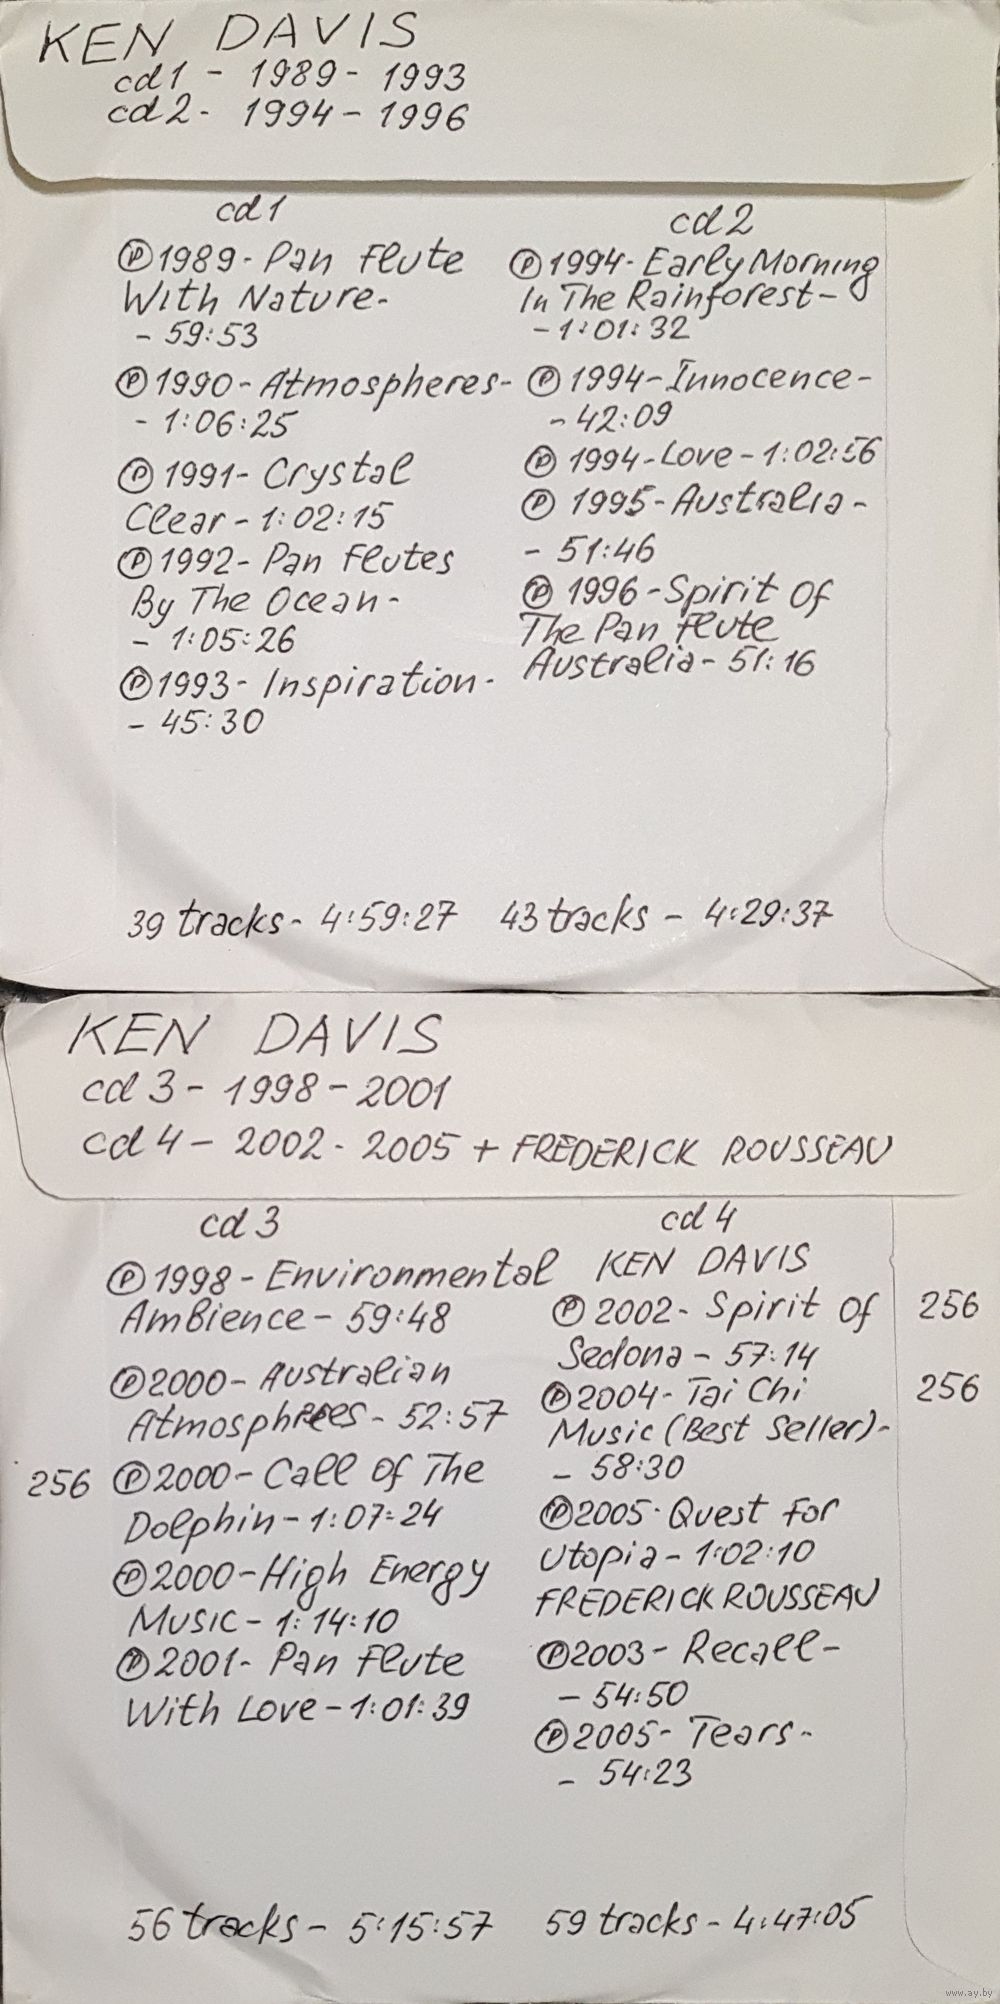 KEN DAVIS
cd1 - 1989 - 1993
cd2 - 1994 - 1996
cd1
Ⓟ1989 - Pan Flute
With Nature -
- 59:53
Ⓟ1990 - Atmospheres -
- 1:06:25
Ⓟ1991 - Crystal
Clear - 1:02:15
Ⓟ1992 - Pan Flutes
By The Ocean -
- 1:05:26
Ⓟ1993 - Inspiration -
- 45:30
39 tracks - 4:59:27
cd2
Ⓟ1994 - Early Morning
In The Rainforest -
- 1:01:32
Ⓟ1994 - Innocence -
- 42:09
Ⓟ1994 - Love - 1:02:56
Ⓟ1995 - Australia -
- 51:46
Ⓟ1996 - Spirit Of
The Pan Flute
Australia - 51:16
43 tracks - 4:29:37
KEN DAVIS
cd3 - 1998 - 2001
cd4 - 2002 - 2005 + FREDERICK ROUSSEAU
cd3
Ⓟ1998 - Environmental
Ambience - 59:48
Ⓟ2000 - Australian
Atmosphrees - 52:57
256 Ⓟ2000 - Call Of The
Dolphin - 1:07:24
Ⓟ2000 - High Energy
Music - 1:14:10
Ⓟ2001 - Pan Flute
With Love - 1:01:39
56 tracks - 5:15:57
cd4
KEN DAVIS
Ⓟ2002 - Spirit Of 256
Sedona - 57:14
Ⓟ2004 - Tai Chi 256
Music (Best Seller) -
- 58:30
Ⓟ2005 - Quest For
Utopia - 1:02:10
FREDERICK ROUSSEAU
Ⓟ2003 - Recall -
- 54:50
Ⓟ2005 - Tears -
- 54:23
59 tracks - 4:47:05
www.ay.by